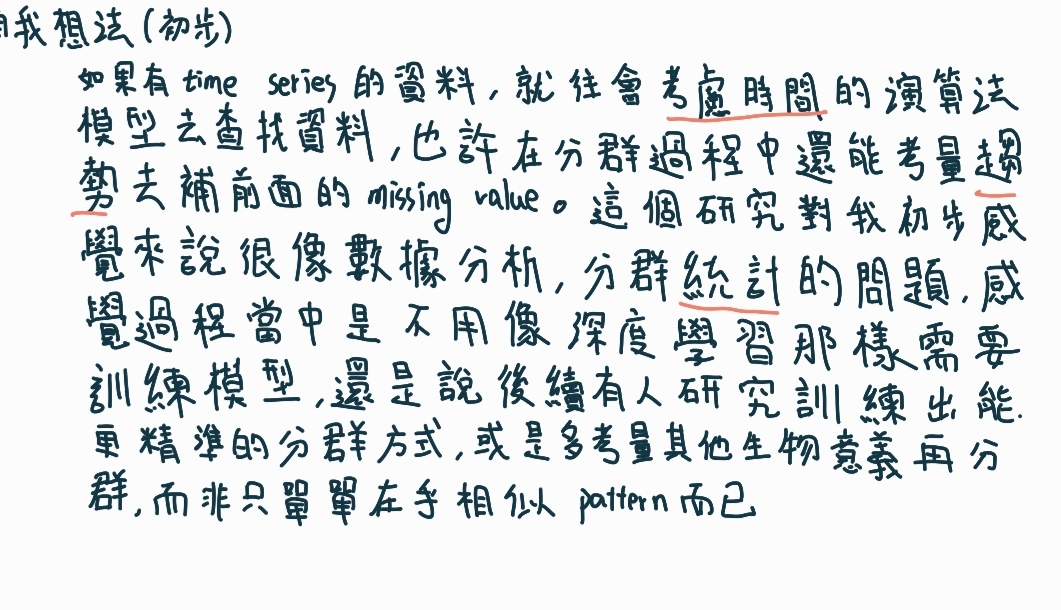 我想法(初步)
如果有 time series 的資料，就往會考慮時間的演算法
模型去查找資料，也許在分群過程中還能考量趨
勢去補前面的 missing value。這個研究對我初步感
覺來說很像數據分析，分群統計的問題，感
覺過程當中是不用像深度學習那樣需要
訓練模型，還是說後續有人研究訓練出能
更精準的分群方式，或是多考量其他生物意義再分
群，而非只單單在乎相似 pattern 而已